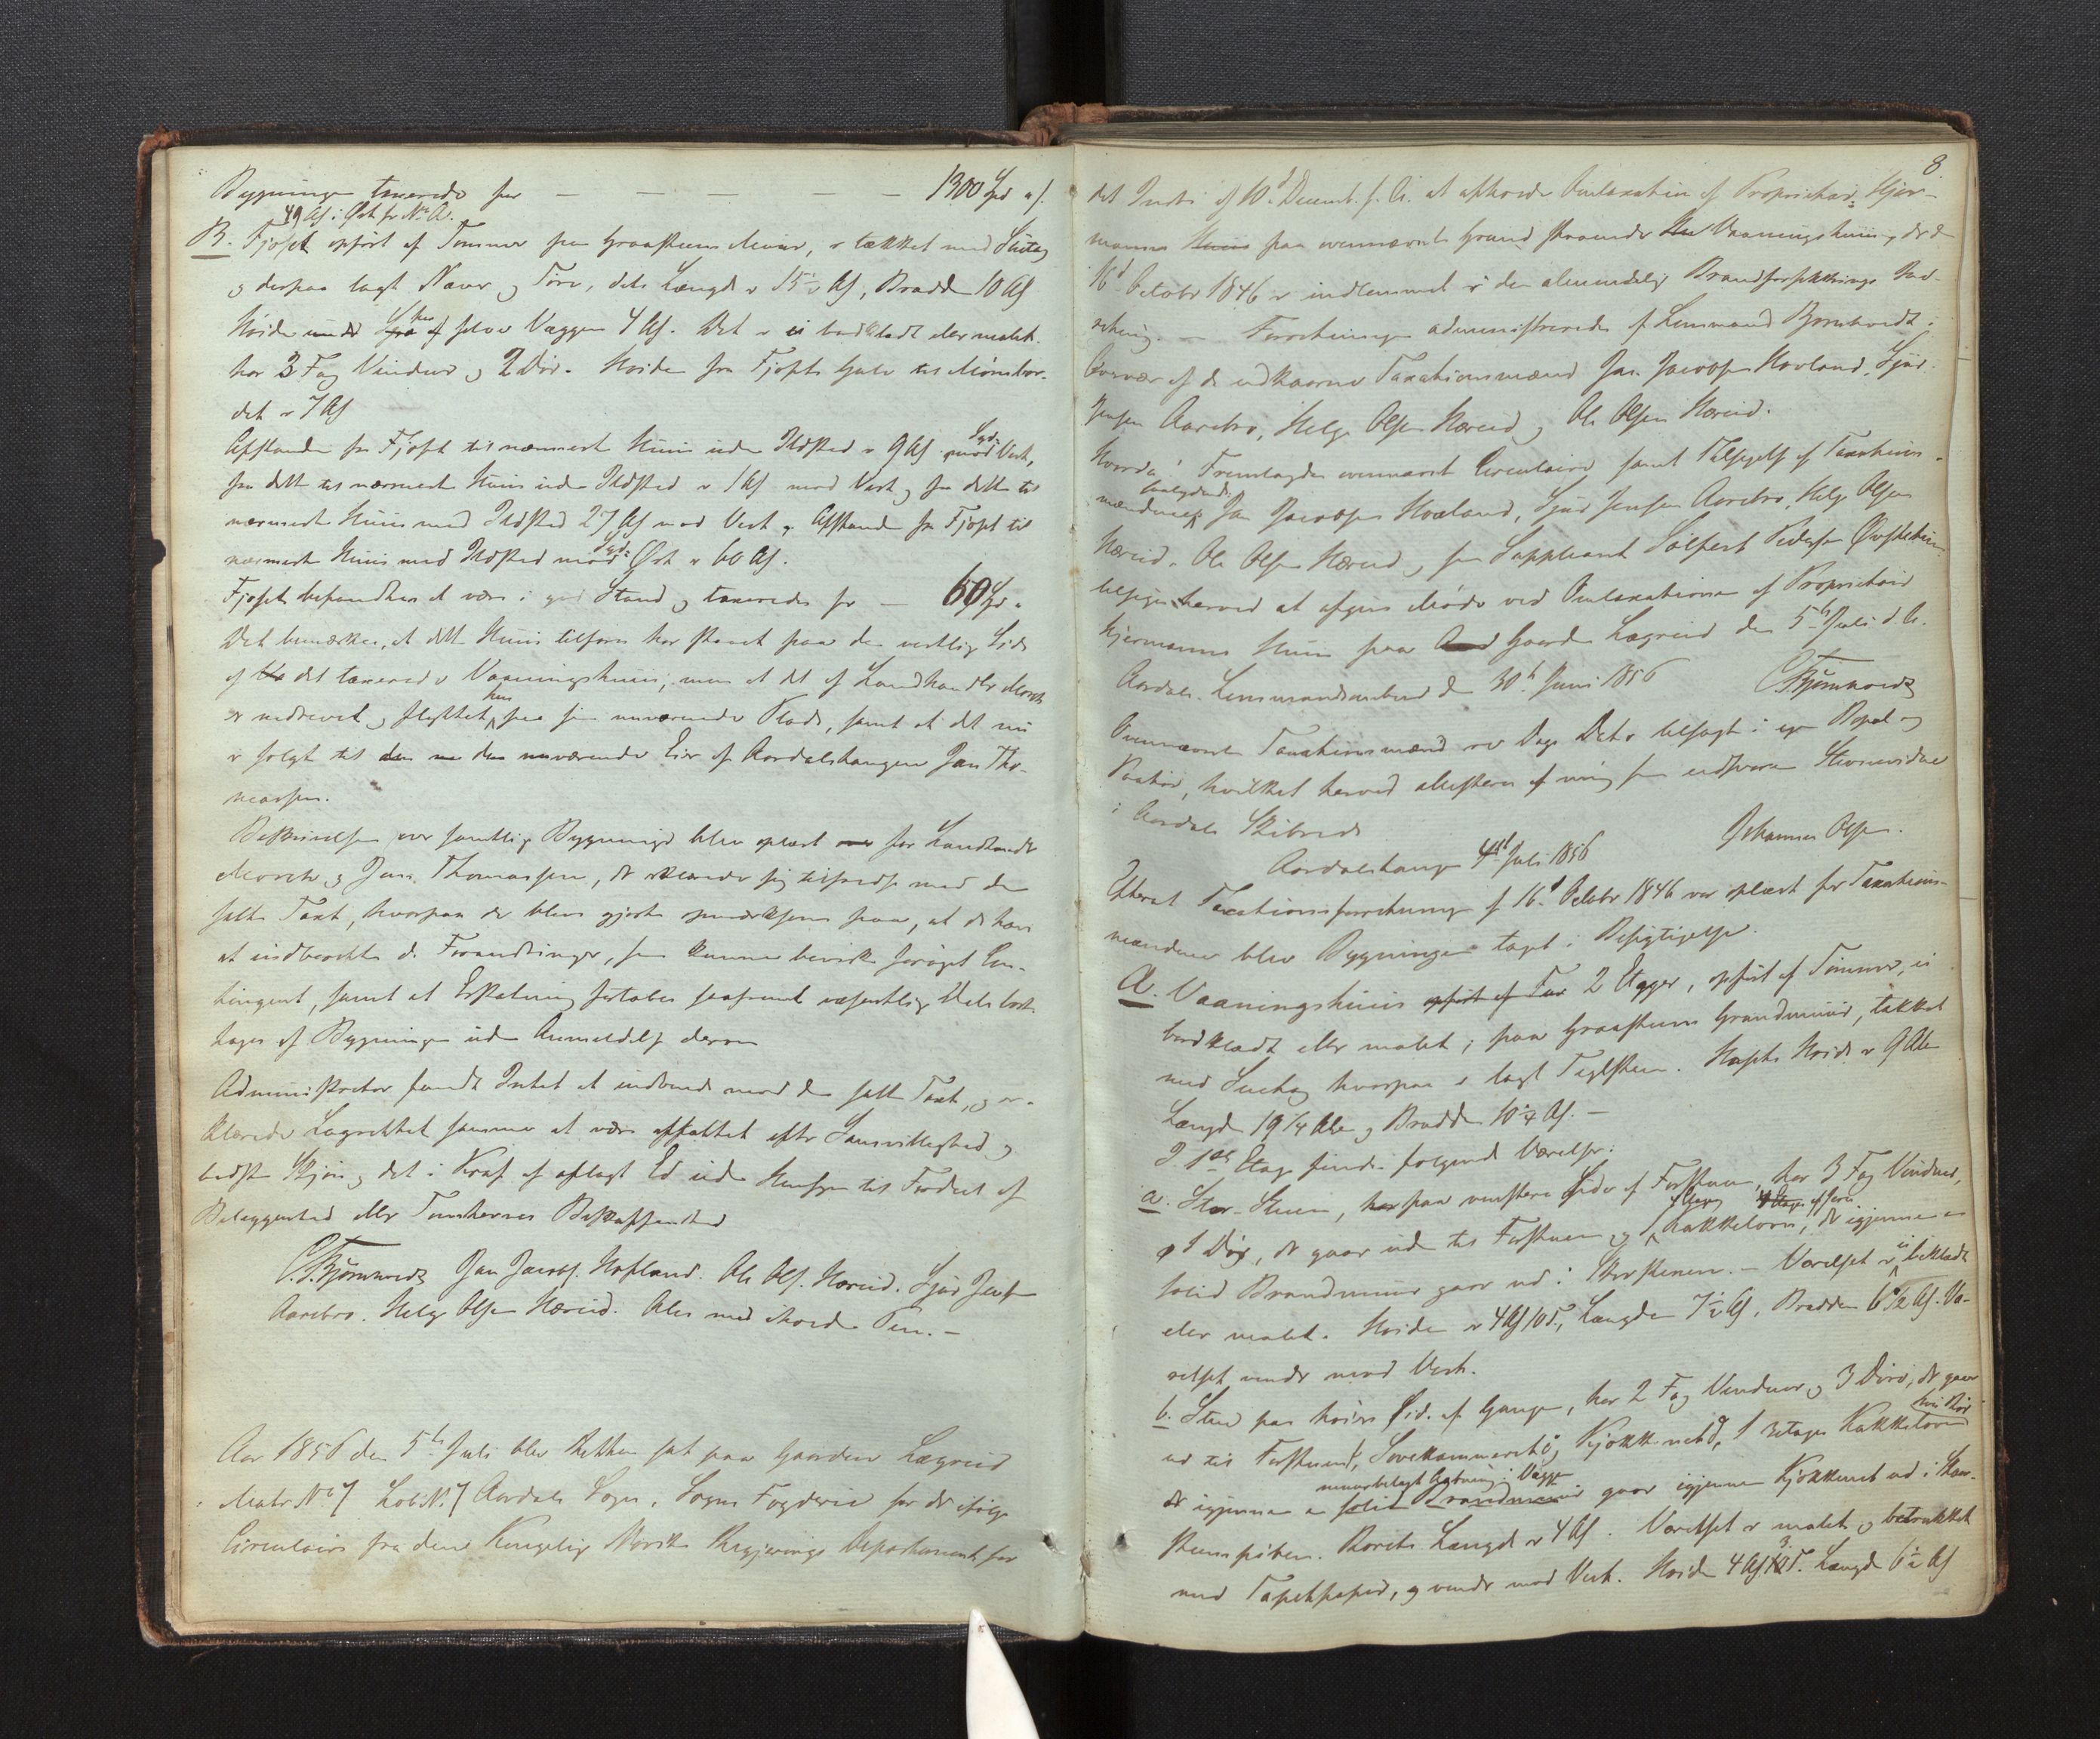 Bygningen taxeredes for — — — — — 1300 Spd
49 Al. i Øst fr No A.
B. Fjøset opført af Tømmer paa Graasteens Muur, er tækket med Suetag
og derpaa lagt Næver og Torv, dets Længde er 15 1/2 Al, Bredde 10 Al
Høide selve Væggen 4 Al. Det er ei bordklædt eller malet.
har 3 Fag Vinduer og 2 Dør. Høiden fra Fjøsets Gulv til Mønsbor-
det er 7 Al
Afstanden fra Fjøset til nærmeste Huus uden Ildsted er 9 Al mod Syd-Vest,
fra dette til nærmeste Huus uden Ildsted er 1 Al mod Vest og fra dette til
nærmeste Huus med Ildsted 27 Al mod Vest. Afstanden fra Fjøset til
nærmeste Huus med Ildsted mod Syd-Øst er 60 Al.
Fjøset befandtes at være i god Stand og taxeredes for — 60 Spd.
Det bemærkes, at dette Huus tilforn har staaet paa den vestlige Side
af det taxerede Vaaningshuus, men at det af Landhandler Morch
er nedrevet og flyttet hen paa sin nuværende Plads, samt at det nu
er solgt til den nuværende Eier af Aardalstangen Jan Tho-
massen.
Beskrivelsen over samtlige Bygninger blev oplæst for Landhandler
Morch og Jan Thomassen, der erklærede sig tilfreds med den
satte Taxt, hvorpaa de bleve gjorte opmærksom paa, at de have
at indberette de Forandringer, som kunne bevirke forøget Con-
tingent, samt at Erstatning fortabes saafremt væsentlige Dele bort-
tages af Bygningen uden Anmeldelse derom
Administrator fandt Intet at indvende mod den satte Taxt, og er-
klærede Lagrettet samme at være affattet efter Samvittighed og
bedste Skjøn og det i Kraft af aflagt Ed uden Hensyn til Fordeel af
Beliggenhed eller Tomternes Beskaffenhed
C. Bjørnvedt Jan Jacobs. Hofland. Ole Ols. Hæreid. Sjur Jens
Aarebro. Helge Olsen Hæreid. Alle med iholden Pen. —
Aar 1856 den 5te Juli blev Retten sat paa Gaarden Lægreid
Matr No 7 Lob. No 7 Aardals Sogn, Sogns Fogderie for der ifølge
Circulaire fra den Kongelig Norske Regjerings Departement for
8.
det Indre af 10de Decemb. f. A. at afholde Omtaxation af Proprietair Hjer-
manns paa ovennævnte Grund staaende Vaaningshuus, der d
16de October 1846 er indlemmet i den almindelige Brandforsikrings Ind-
retning. — Forretningen administreredes af Lensmand Bjørnvedt i
Overvær af de udkaarne Taxationsmænd Jan Jacobsen Hovland, Sjur
Jensen Aarebro, Helge Olsen Hæreid og Ole Olsen Hæreid.
Hvorda! Fremlagdes ovennævnte Circulaire samt Tilsigelse af Taxations-
mændene saalydende: Jan Jacobsen Hovland, Sjur Jensen Aarebro, Helge Olsen
Hæreid, Ole Olsen Hæreid, som Suppleant Sølfest Pedersen Øvstebøen
tilsiges herved at afgive Møde ved Omtaxationen af Proprietair
Hjermanns Huus paa Gaarden Lægreid den 5te Juli d. A.
Aardals Lensmandsembed d 30te Juni 1856 C Bjørnvedt
Ovennævnte Taxationsmænd ere Dags Dato tilsagt i egen Bopæl og
Paahør, hvilket herved attesteres af mig som edsvoren Stevnevidne
i Aardals Skibrede
Aardalstangen 4de Juli 1856 Johannes Olsen.
Efterat Taxationsforretningen af 16de October 1846 var oplæst for Taxations-
mændene blev Bygningen taget i Besigtigelse.
A. Vaaningshuus opført af 2 Etager, opført af Tømmer, ei
bordklædt eller malet, paa Graasteens Grundmuur, tækket
med Suetag hvorpaa er lagt Teglsteen. Husets Høide er 9 Alen
Længde 19 1/4 Alen og Bredde 10 1/4 Al. —
I 1ste Etage findes følgende Værelser:
a. Stor-Stuen, paa venstre Side af Forstuen, har 3 Fag Vinduer,
1 Dør, der gaar ud til Forstuen og 1 Kakkelovn, der igjennem en
solid Brandmuur gaar ud i Skorstenen. — Værelset er ei beklædt
eller malet. Høiden er 4 Al 10 T, Længden 7 1/2 Al, Bredden 6 1/2 Al. Væ-
relset vender mod Vest.
b. Stue paa høire Side af Gangen, har 2 Fag Vinduer og 3 Døre, der gaar
ud til Forstuen, Sovekammeret og Kjøkkenet, 1 2etages Kakkelovn hvis Rør
der igjennem en gaar igjennem Kjøkkenet ud i Skor-
steenspiben. Rørets Længde er 4 Al. Værelset er malet og betrukket
med Tapetpapir, og vender mod Vest. Høide 4 Al 3 T. Længde 6 1/2 Al